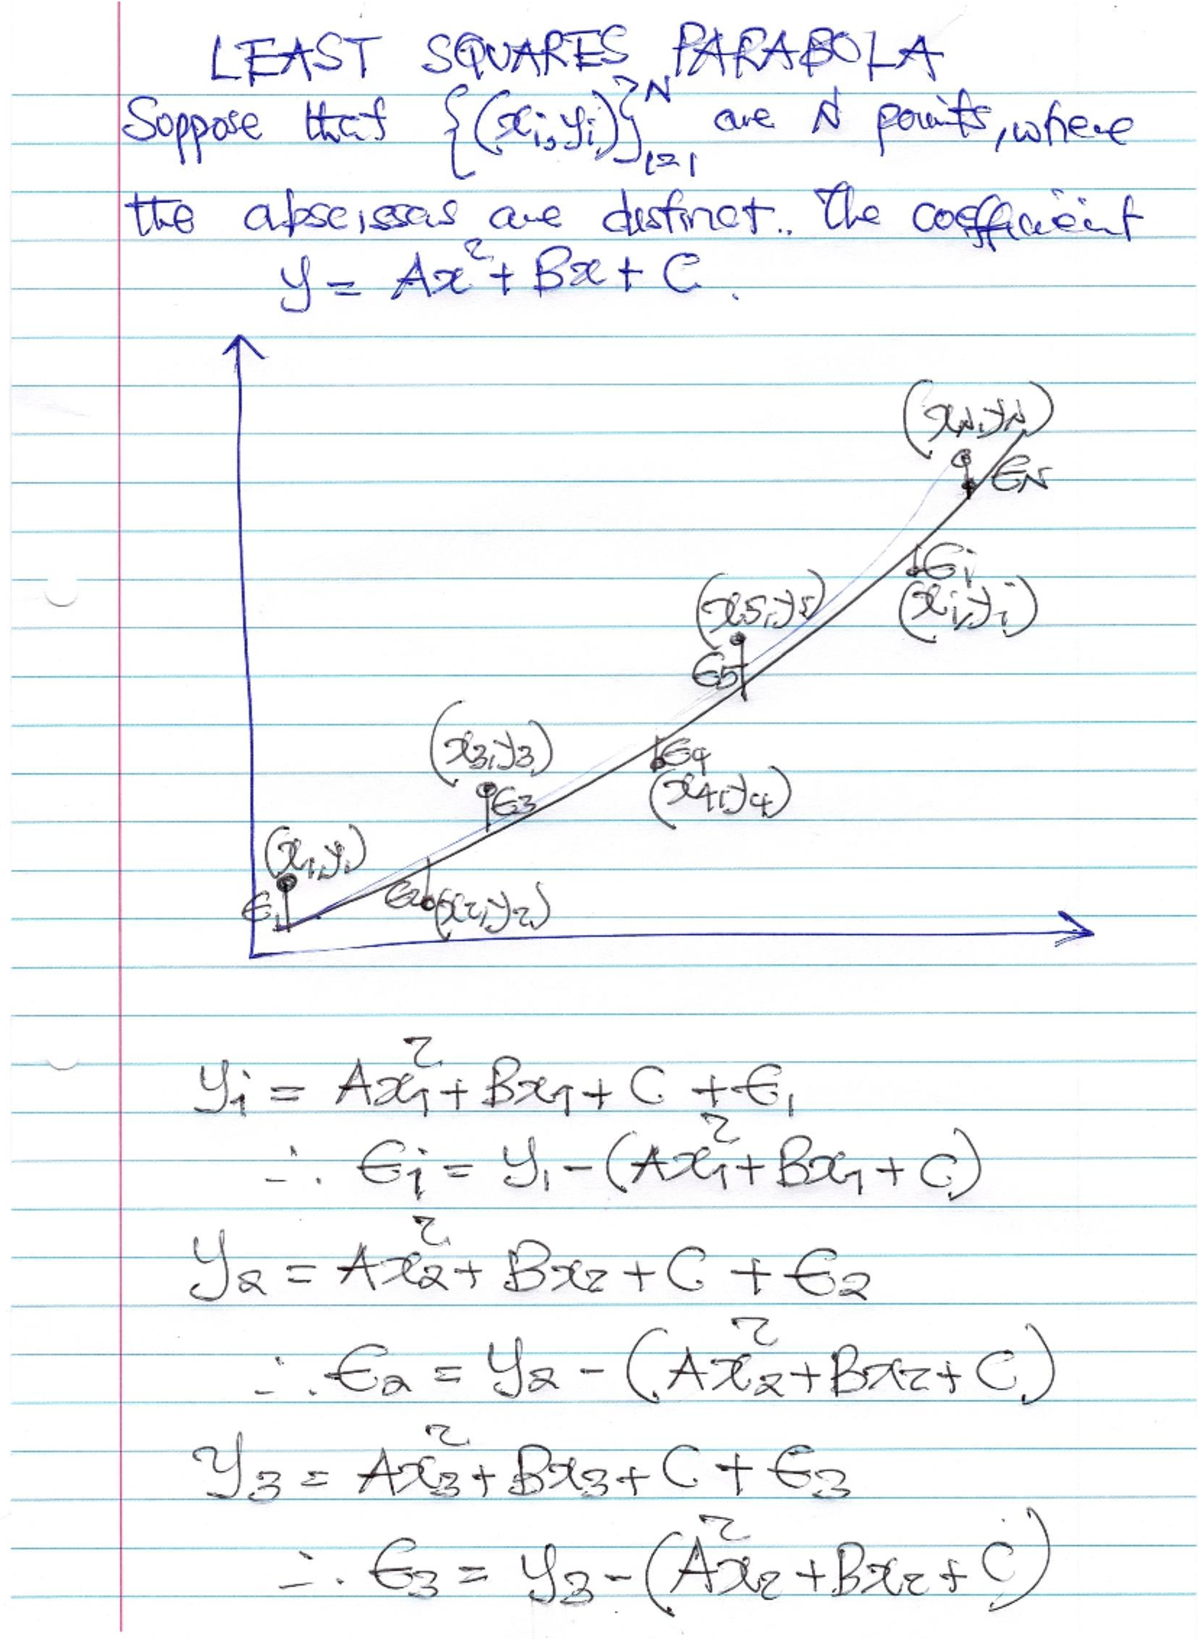 LEAST SQUARES PARABOLA
Soppose that {(xi, yi)}ᴺᵢ₌₁ are N points, where
the abscissas are distinct.. The coefficient
y = Ax² + Bx + C.
(xN, yN)
ЄN
Єi
(xi, yi)
(x5, y5)
Є5
(x3, y3)
Є4
Є3
(x4, y4)
(x1, y1)
Є1
Є2
(x2, y2)
yi = Ax1² + Bx1 + C + Є1
∴ Єi = y1 - (Ax1² + Bx1 + C)
y2 = Ax2² + Bx2 + C + Є2
∴ Є2 = y2 - (Ax2² + Bx2 + C)
y3 = Ax3² + Bx3 + C + Є3
∴ Є3 = y3 - (Ax2² + Bx2 + C)